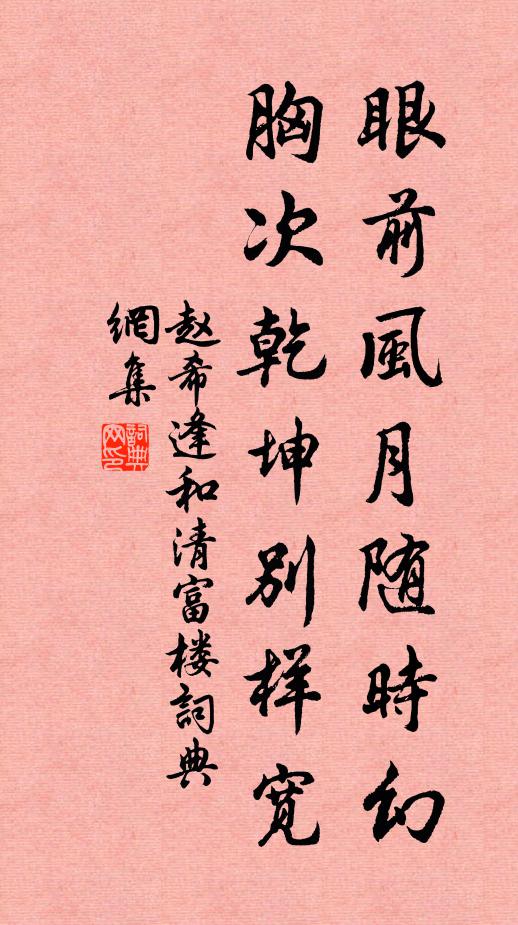 眼前風月随時幻
胸次乾坤别样寛
赵希逢和清富楼詞典
網集
詞典網印